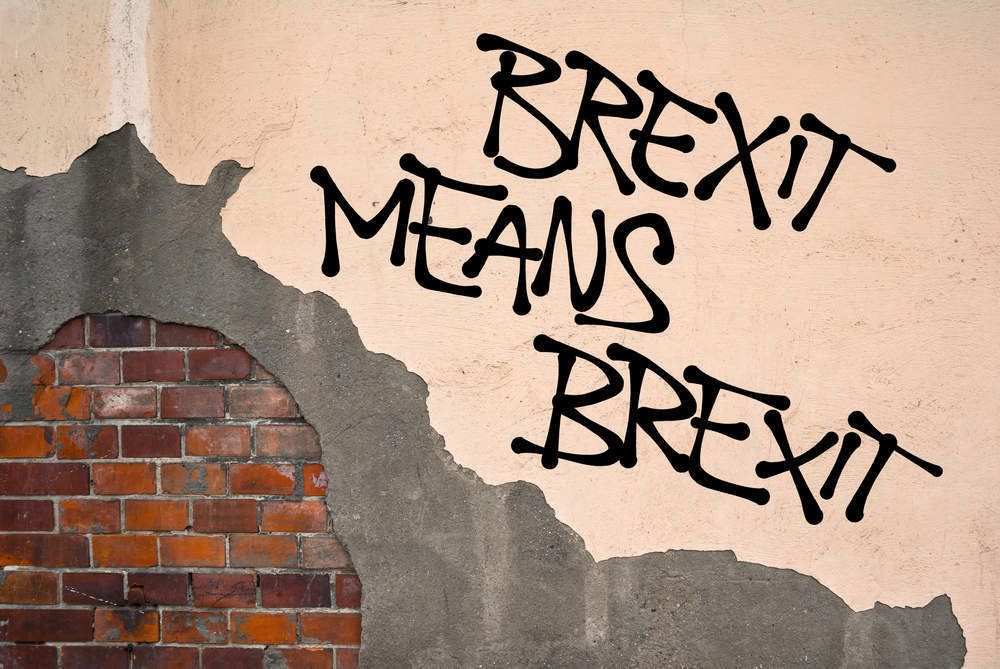 BREXiT
MEANS
BREXiT